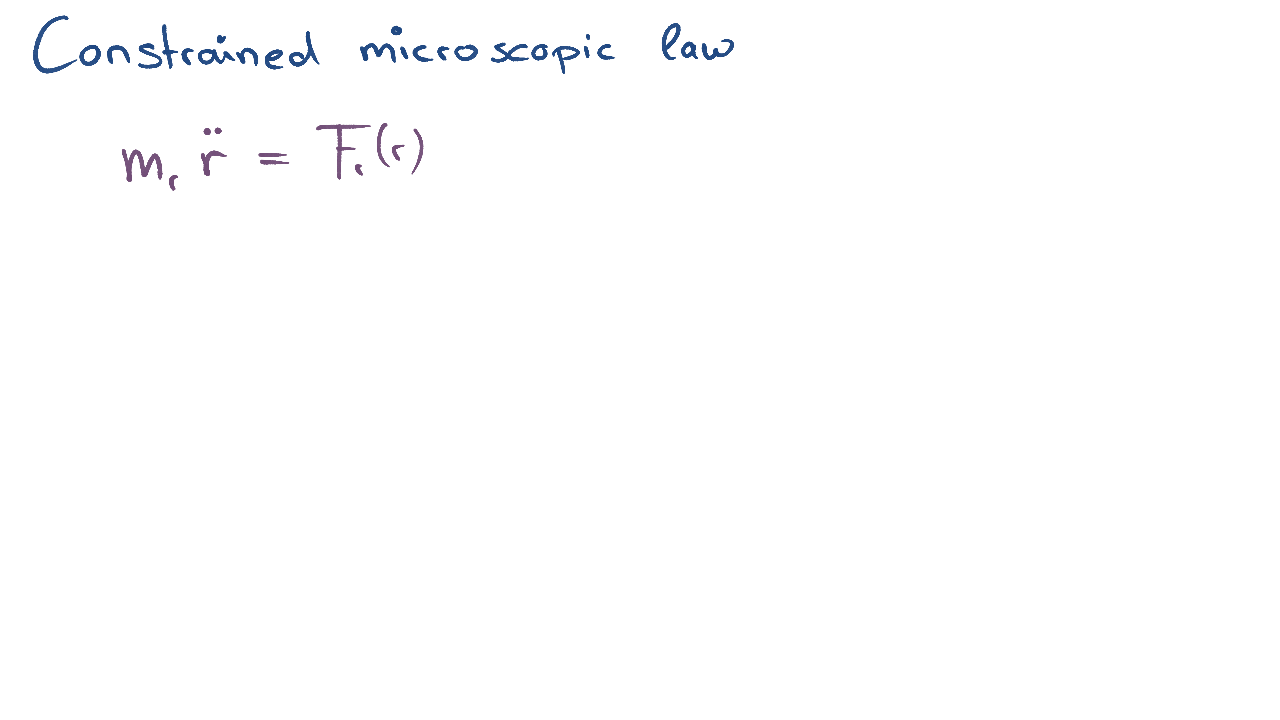 Constrained microscopic law
mᵣ r̈ = Fᵣ(r)